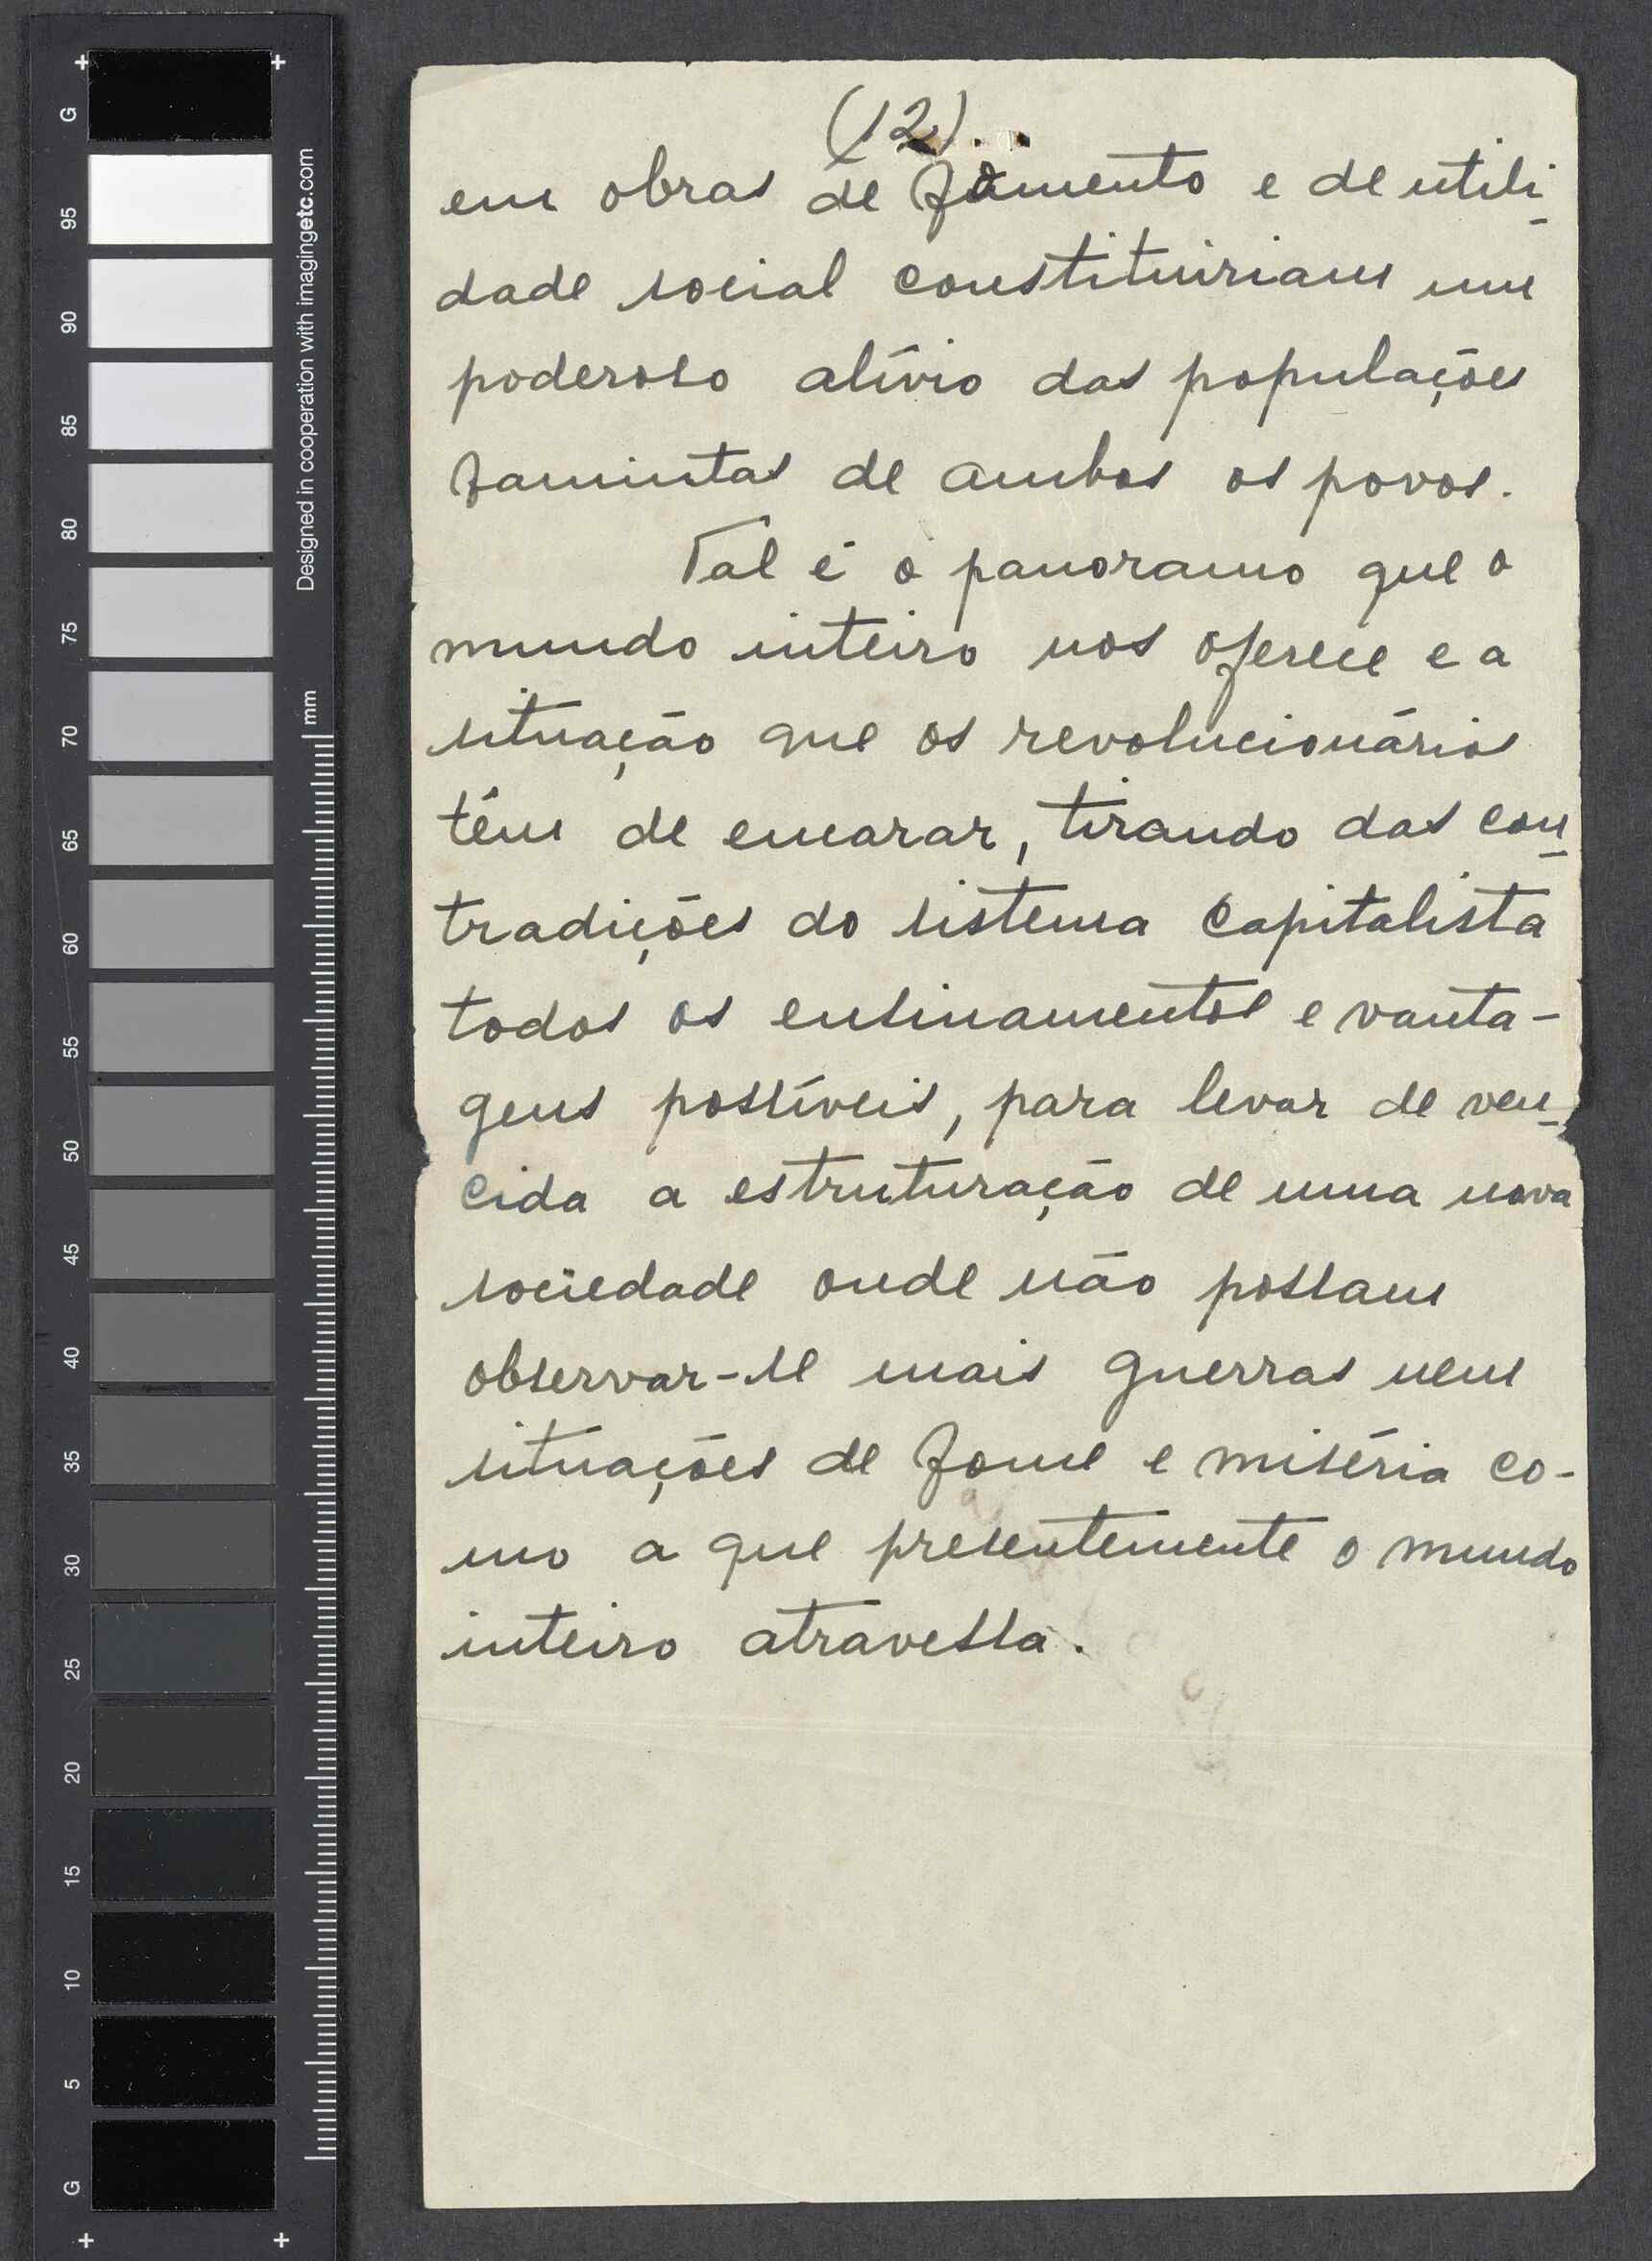 (12).
em obras de fomento e de utili-
dade social constituiriam um
poderoso alívio das populações
famintas de ambos os povos.
Tal é o panoramo que o
mundo inteiro nos oferece e a
situação que os revolucionários
têm de encarar, tirando das con-
tradições do sistema capitalista
todos os ensinamentos e vanta-
gens possíveis, para levar de ven-
cida a estruturação de uma nova
sociedade onde não possam
observar-se mais guerras nem
situações de fome e miséria co-
mo a que presentemente o mundo
inteiro atravessa.
G
95
90
85
80
75
70
65
60
55
50
45
40
35
30
25
20
15
10
5
G
Designed in cooperation with imagingetc.com
mm